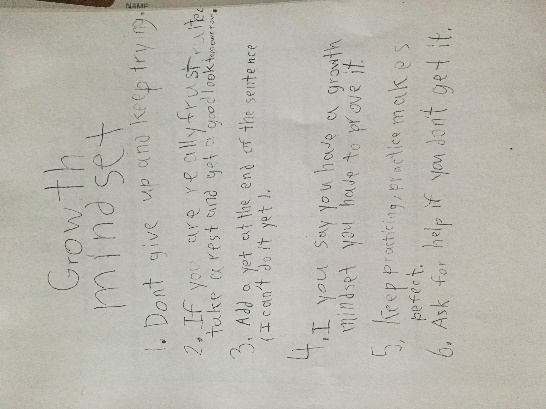 NAME
Growth
mindset
1. Don't give up and keep trying.
2. If you are really frustruited
take a rest and get a good look tomorrow.
3. Add a yet at the end of the sentence
(I can't do it yet).
4. I you say you have a growth
mindset you have to prove it.
5. Keep practicing, practice makes
pefect.
6. Ask for help if you don't get it.